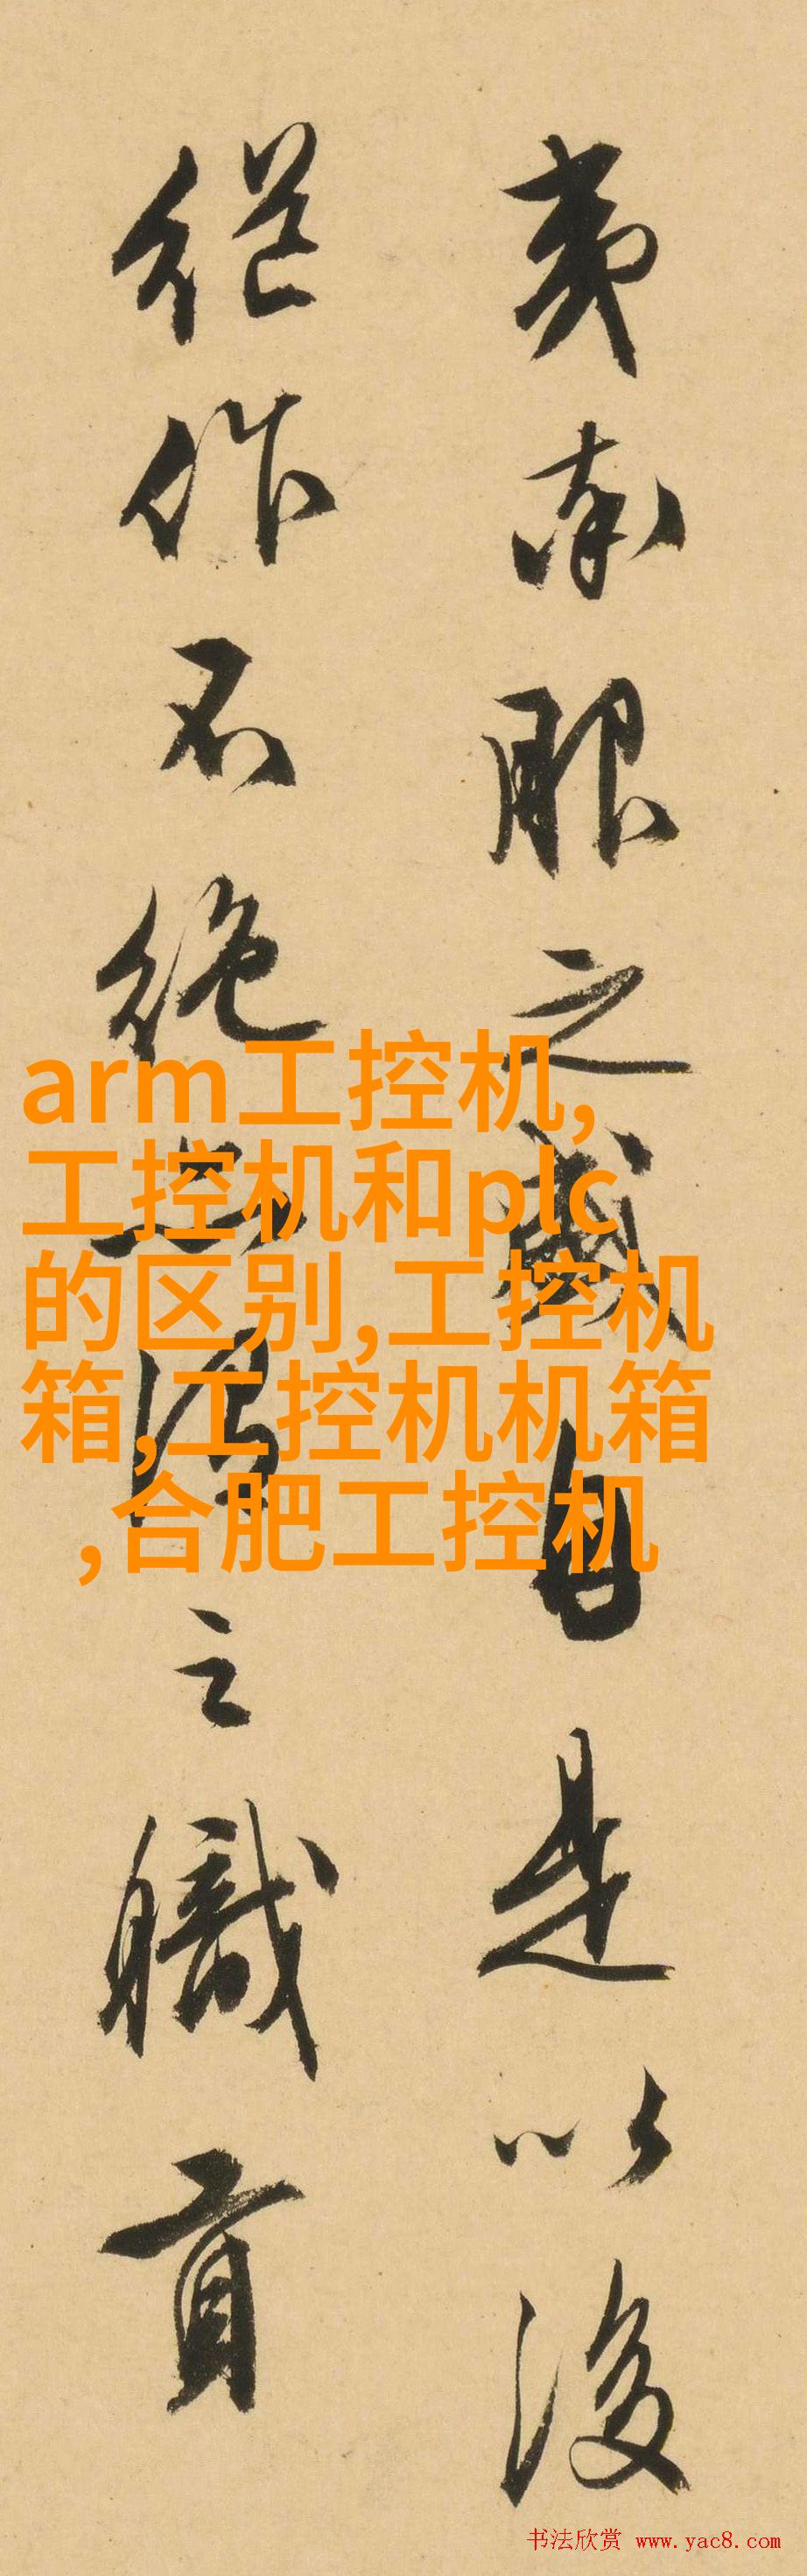 夷率服之盛自是以後
継作不絶之職貢
arm工控机,
工控机和plc
的区别,工控机
箱,工控机机箱
,合肥工控机
书法欣赏 www.yac8.com